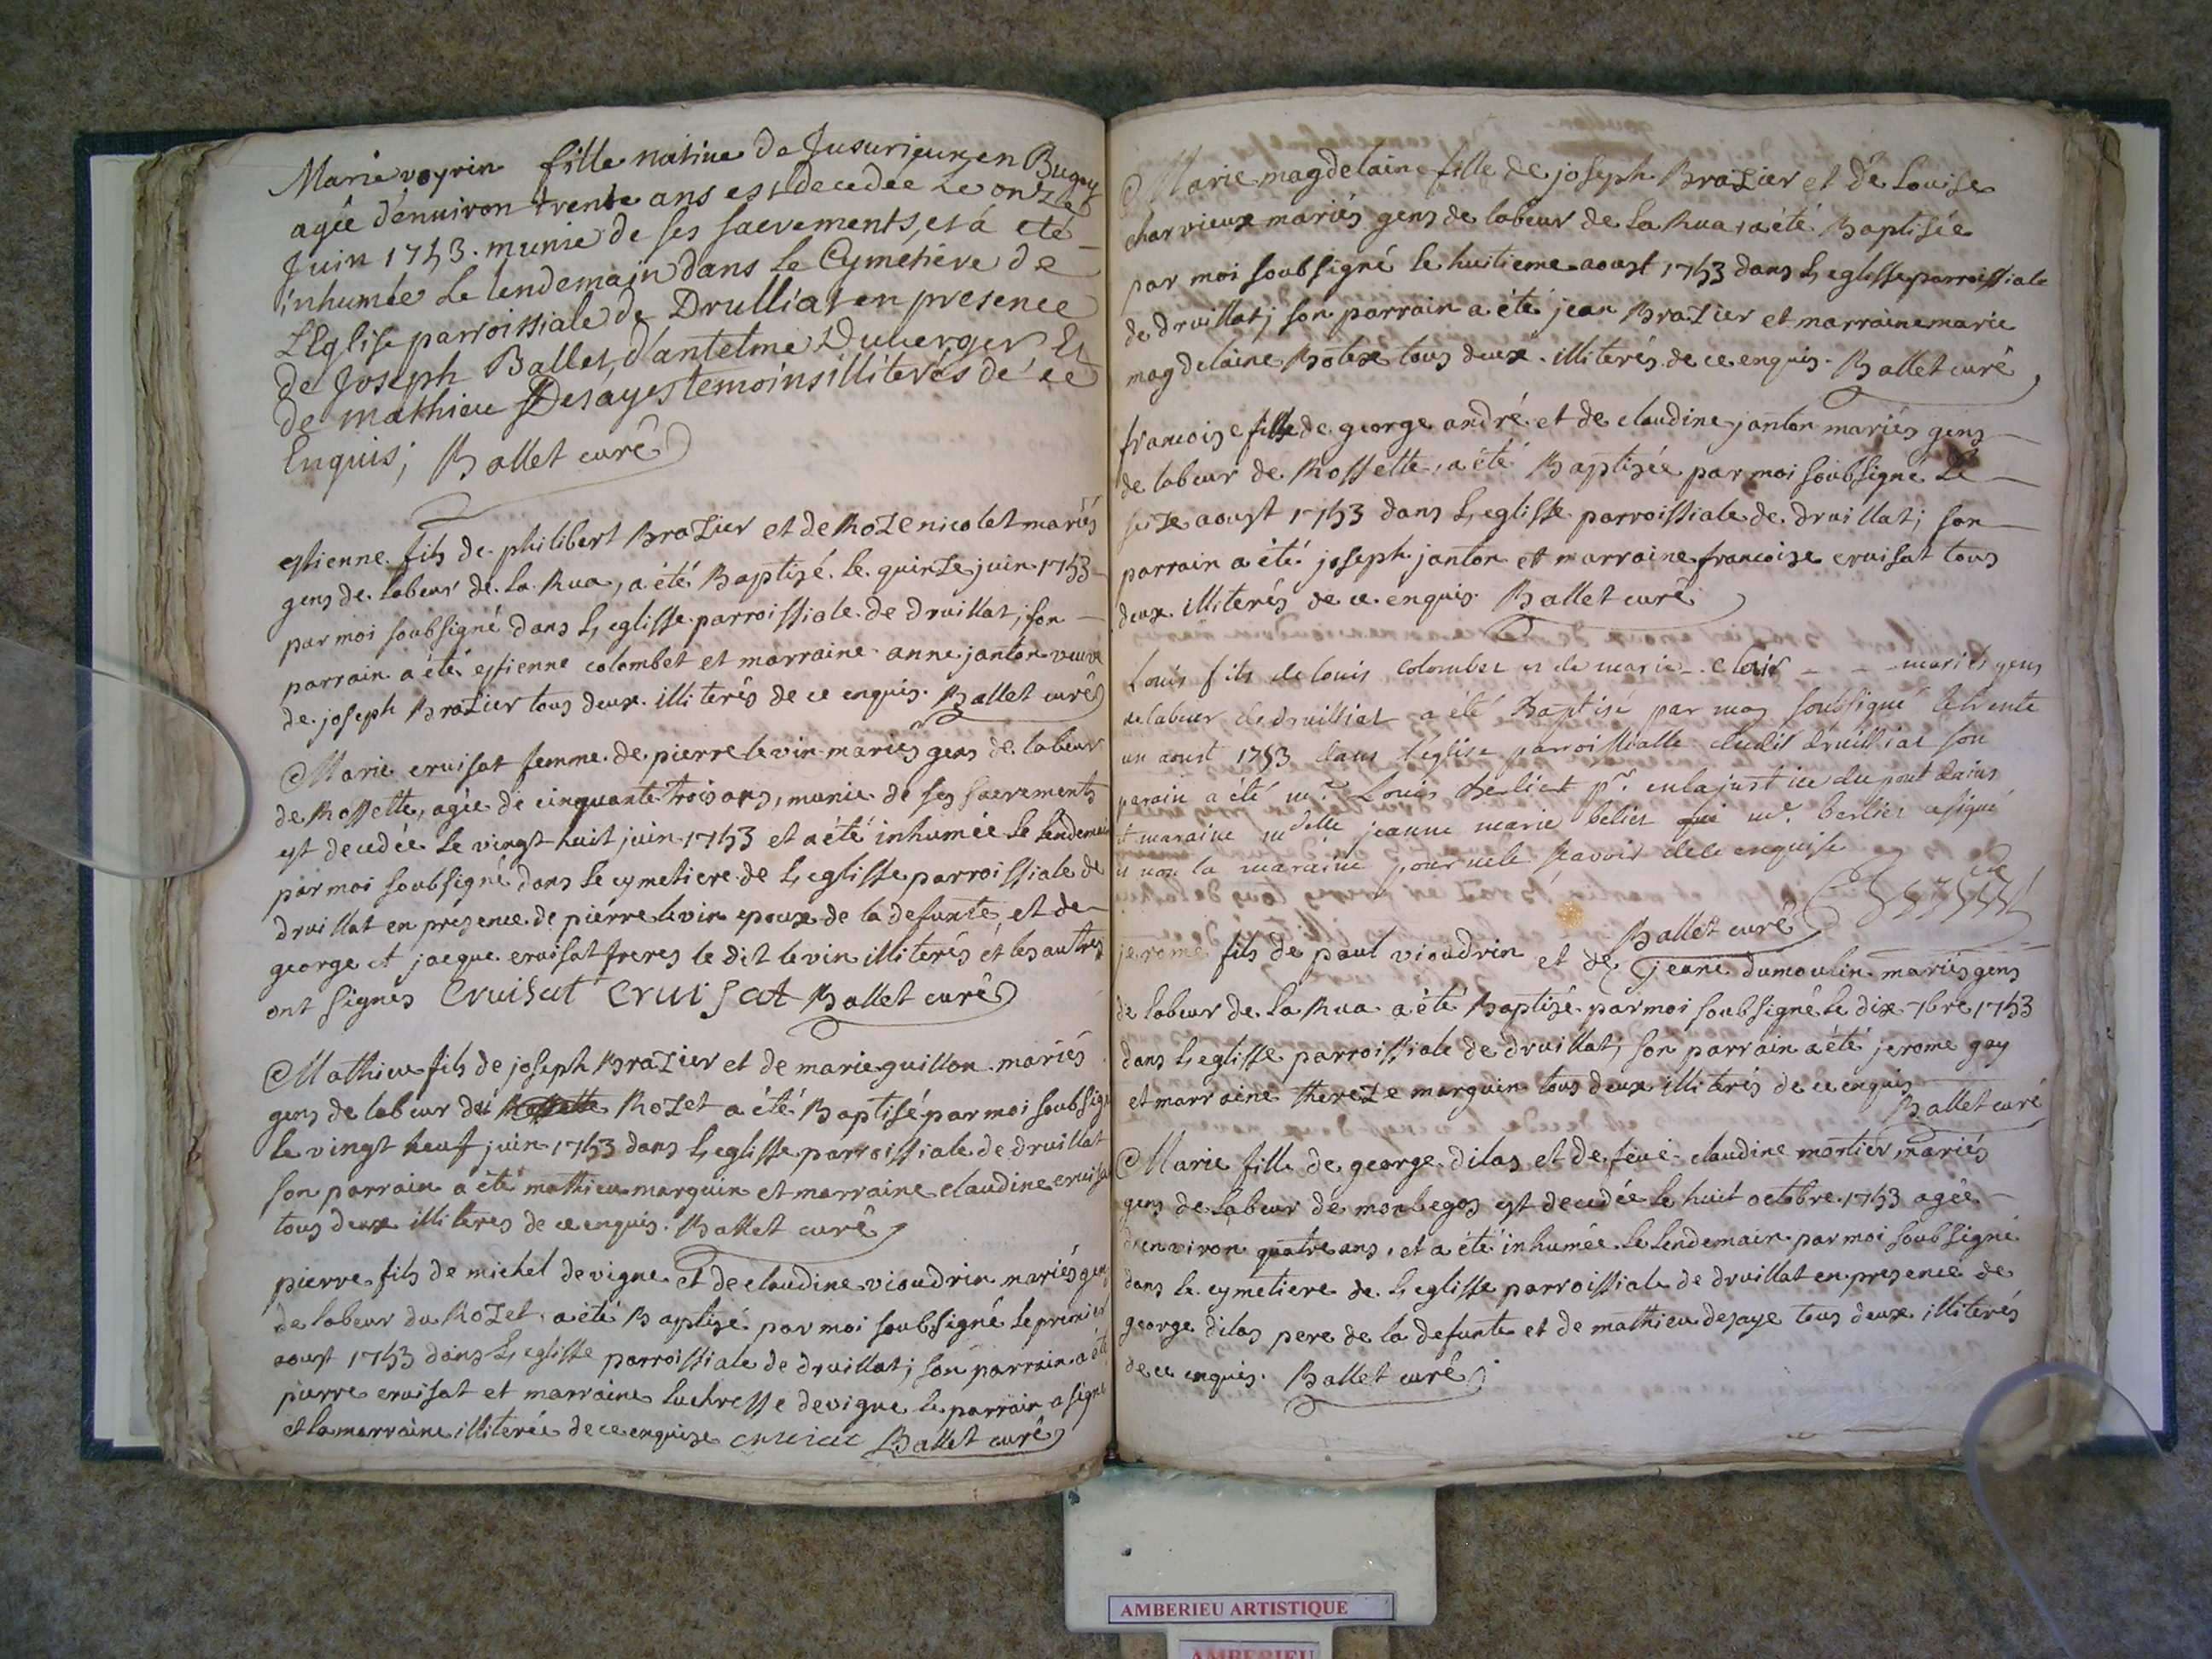 Marie voyrin fille native de Jusurieux en Bugey
agée d'environ trente ans est decedée le onze
Juin 1753. munie de ses sacrements, et á eté
inhumée le lendemain dans le Cymetiere de
L'Eglise parroissiale de Drulliat en presence
de Joseph Ballet, d'antelme Duverger Et
de mathieu Desayes temoins illiterés de ce
Enquis; Ballet curé
estienne fils de philibert Brazier et de Roze nicolet mariés
gens de labeur de la Rua, a été Baptizé le quinze juin 1753
par moi soubsigné dans L'eglisse parroissiale de druillat; son
parrain a été estienne colombet et marraine anne janton veuve
de joseph Brazier tous deux illiterés de ce enquis. Ballet curé
Marie cruisat femme de pierre levin mariés gens de labeur
de Rossette, agée de cinquante trois ans, munie de ses sacrements
est decedée le vingt huit juin 1753 et a été inhumée le lendemain
par moi soubsigné dans le cymetiere de L'eglisse parroissiale de
druillat en presence de pierre levin epoux de la defunte, et de
george et jacque cruisat freres le dit levin illiterés et les autres
ont signés Cruisat cruisat Ballet curé
Mathieu fils de joseph Brazier et de marie guillon mariés
gens de labeur du Rozet a été Baptisé par moi soubsigné
le vingt neuf juin 1753 dans L'eglisse parroissiale de druillat
son parrain a été mathieu marguin et marraine claudine cruisat
tous deux illiteres de ce enquis. Ballet curé
pierre fils de michel devigne et de claudine vioudrin mariés gens
de labeur du Rozet a été Baptizé par moi soubsigné le premier
aoust 1753 dans L'eglisse parroissiale de druillat; son parrain a été
pierre cruisat et marraine luchresse devigne le parrain a signé
et la marraine illiterée de ce enquize cruiat Ballet curé
Marie magdelaine fille de joseph Brazier et de Louise
charvieux mariés gens de labeur de la Rua, a été Baptisée
par moi soubsigné le huitieme aoust 1753 dans L'eglisse parroissiale
de druillat; son parrain a été jean Brazier et marraine marie
magdelaine Botex tous deux illiterés de ce enquis. Ballet curé
francoise fille de george andré et de claudine janton mariés gens
de labeur de Rossette, a été Baptizée par moi soubsigné Le
seize aoust 1753 dans L'eglisse parroissiale de druillat; son
parrain a été joseph janton et marraine francoise cruisat tous
deux illiterés de ce enquis. Ballet curé
Louis fils de louis colombet et de marie clair mariés gens
de labeur de druilliat a été Baptisé par moy soubsigné le trente
un aoust 1753 dans l'eglise parroissialle dudit druilliat son
parain a été mr. Louis Berliet pr. en la justice du pont dains
et maraine mdelle jeanne marie belier mr. berlier a signé
et non la maraine pour ne le scavoir dele enquise
Ballet curé
jerome fils de paul vioudrin et de jeane dumoulin mariés gens
de labeur de la Rua a été Baptizé par moi soubsigné le dix 7bre 1753
dans L'eglisse parroissiale de druillat; son parrain a été jerome gay
et marraine thereze marguin tous deux illiterés de ce enquis
Ballet curé
Marie fille de george dilas et de feue claudine mortier mariés
gens de labeur de monlegos est decedée le huit octobre 1753 agée
d'environ quatre ans, et a été inhumée le lendemain par moi soubsigné
dans le cymetiere de L'eglisse parroissiale de druillat en presence de
george dilas pere de la defunte et de mathieu desaye tous deux illiterés
de ce enquis. Ballet curé
AMBERIEU ARTISTIQUE
AMBERIEU